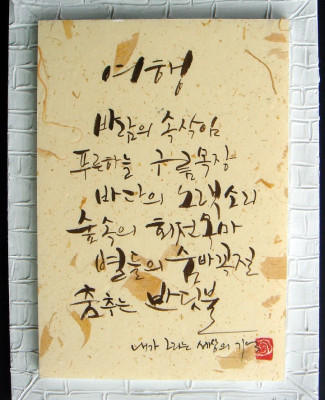 여행
바람의 속삭임
푸른하늘 구름목장
바다의 노랫소리
숲속의 회전목마
별들의 숨바꼭질
춤추는 반딧불
내가 그리는 세상의